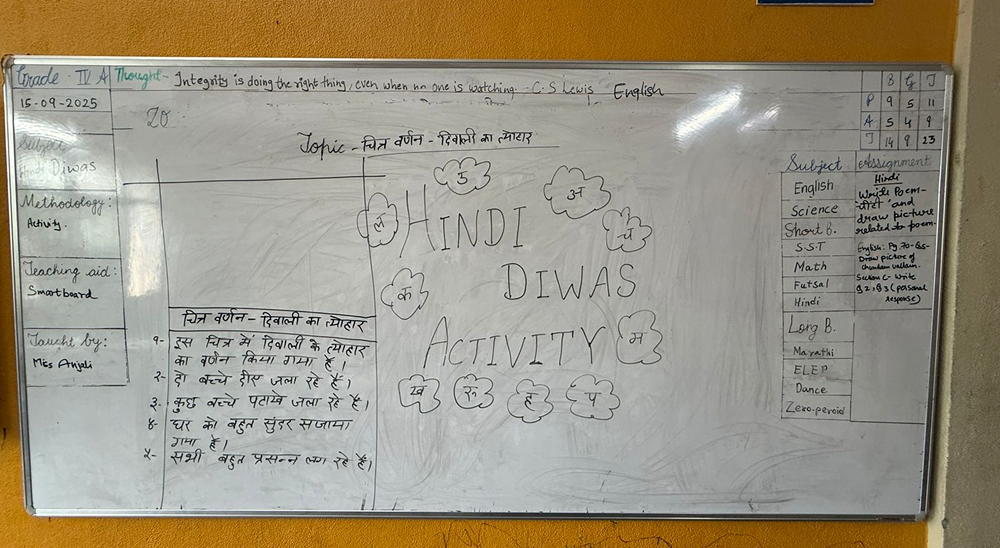 Grade - IV A
15-09-2025
Subject
Hindi Diwas
Methodology:
Activity.
Teaching aid:
Smartboard
Taught by:
Miss Anjali
Thought - Integrity is doing the right thing, even when no one is watching. - C.S Lewis
English
20
Topic - चित्र वर्णन - दिवाली का त्योहार
चित्र वर्णन - दिवाली का त्योहार
१- इस चित्र में दिवाली के त्योहार
का वर्णन किया गया है।
२- दो बच्चे दीए जला रहे हैं।
३- कुछ बच्चे पटाखे जला रहे हैं।
४- घर को बहुत सुंदर सजाया
गया है।
५- सभी बहुत प्रसन्न लग रहे हैं।
अ
ल
HINDI
च
क
DIWAS
ACTIVITY
म
ख
रु
ह
प
B G T
P 9 5 11
A 5 4 9
T 14 9 23
Subject
English
Science
Short B.
S.S.T
Math
Futsal
Hindi
Long B.
Marathi
ELEP
Dance
Zero-peroid
Assignment
Hindi
Write Poem-
and
draw picture
related to poem.
English: Pg.70-
Draw picture of
Section C- Write
Q2, Q3 (personal
response)